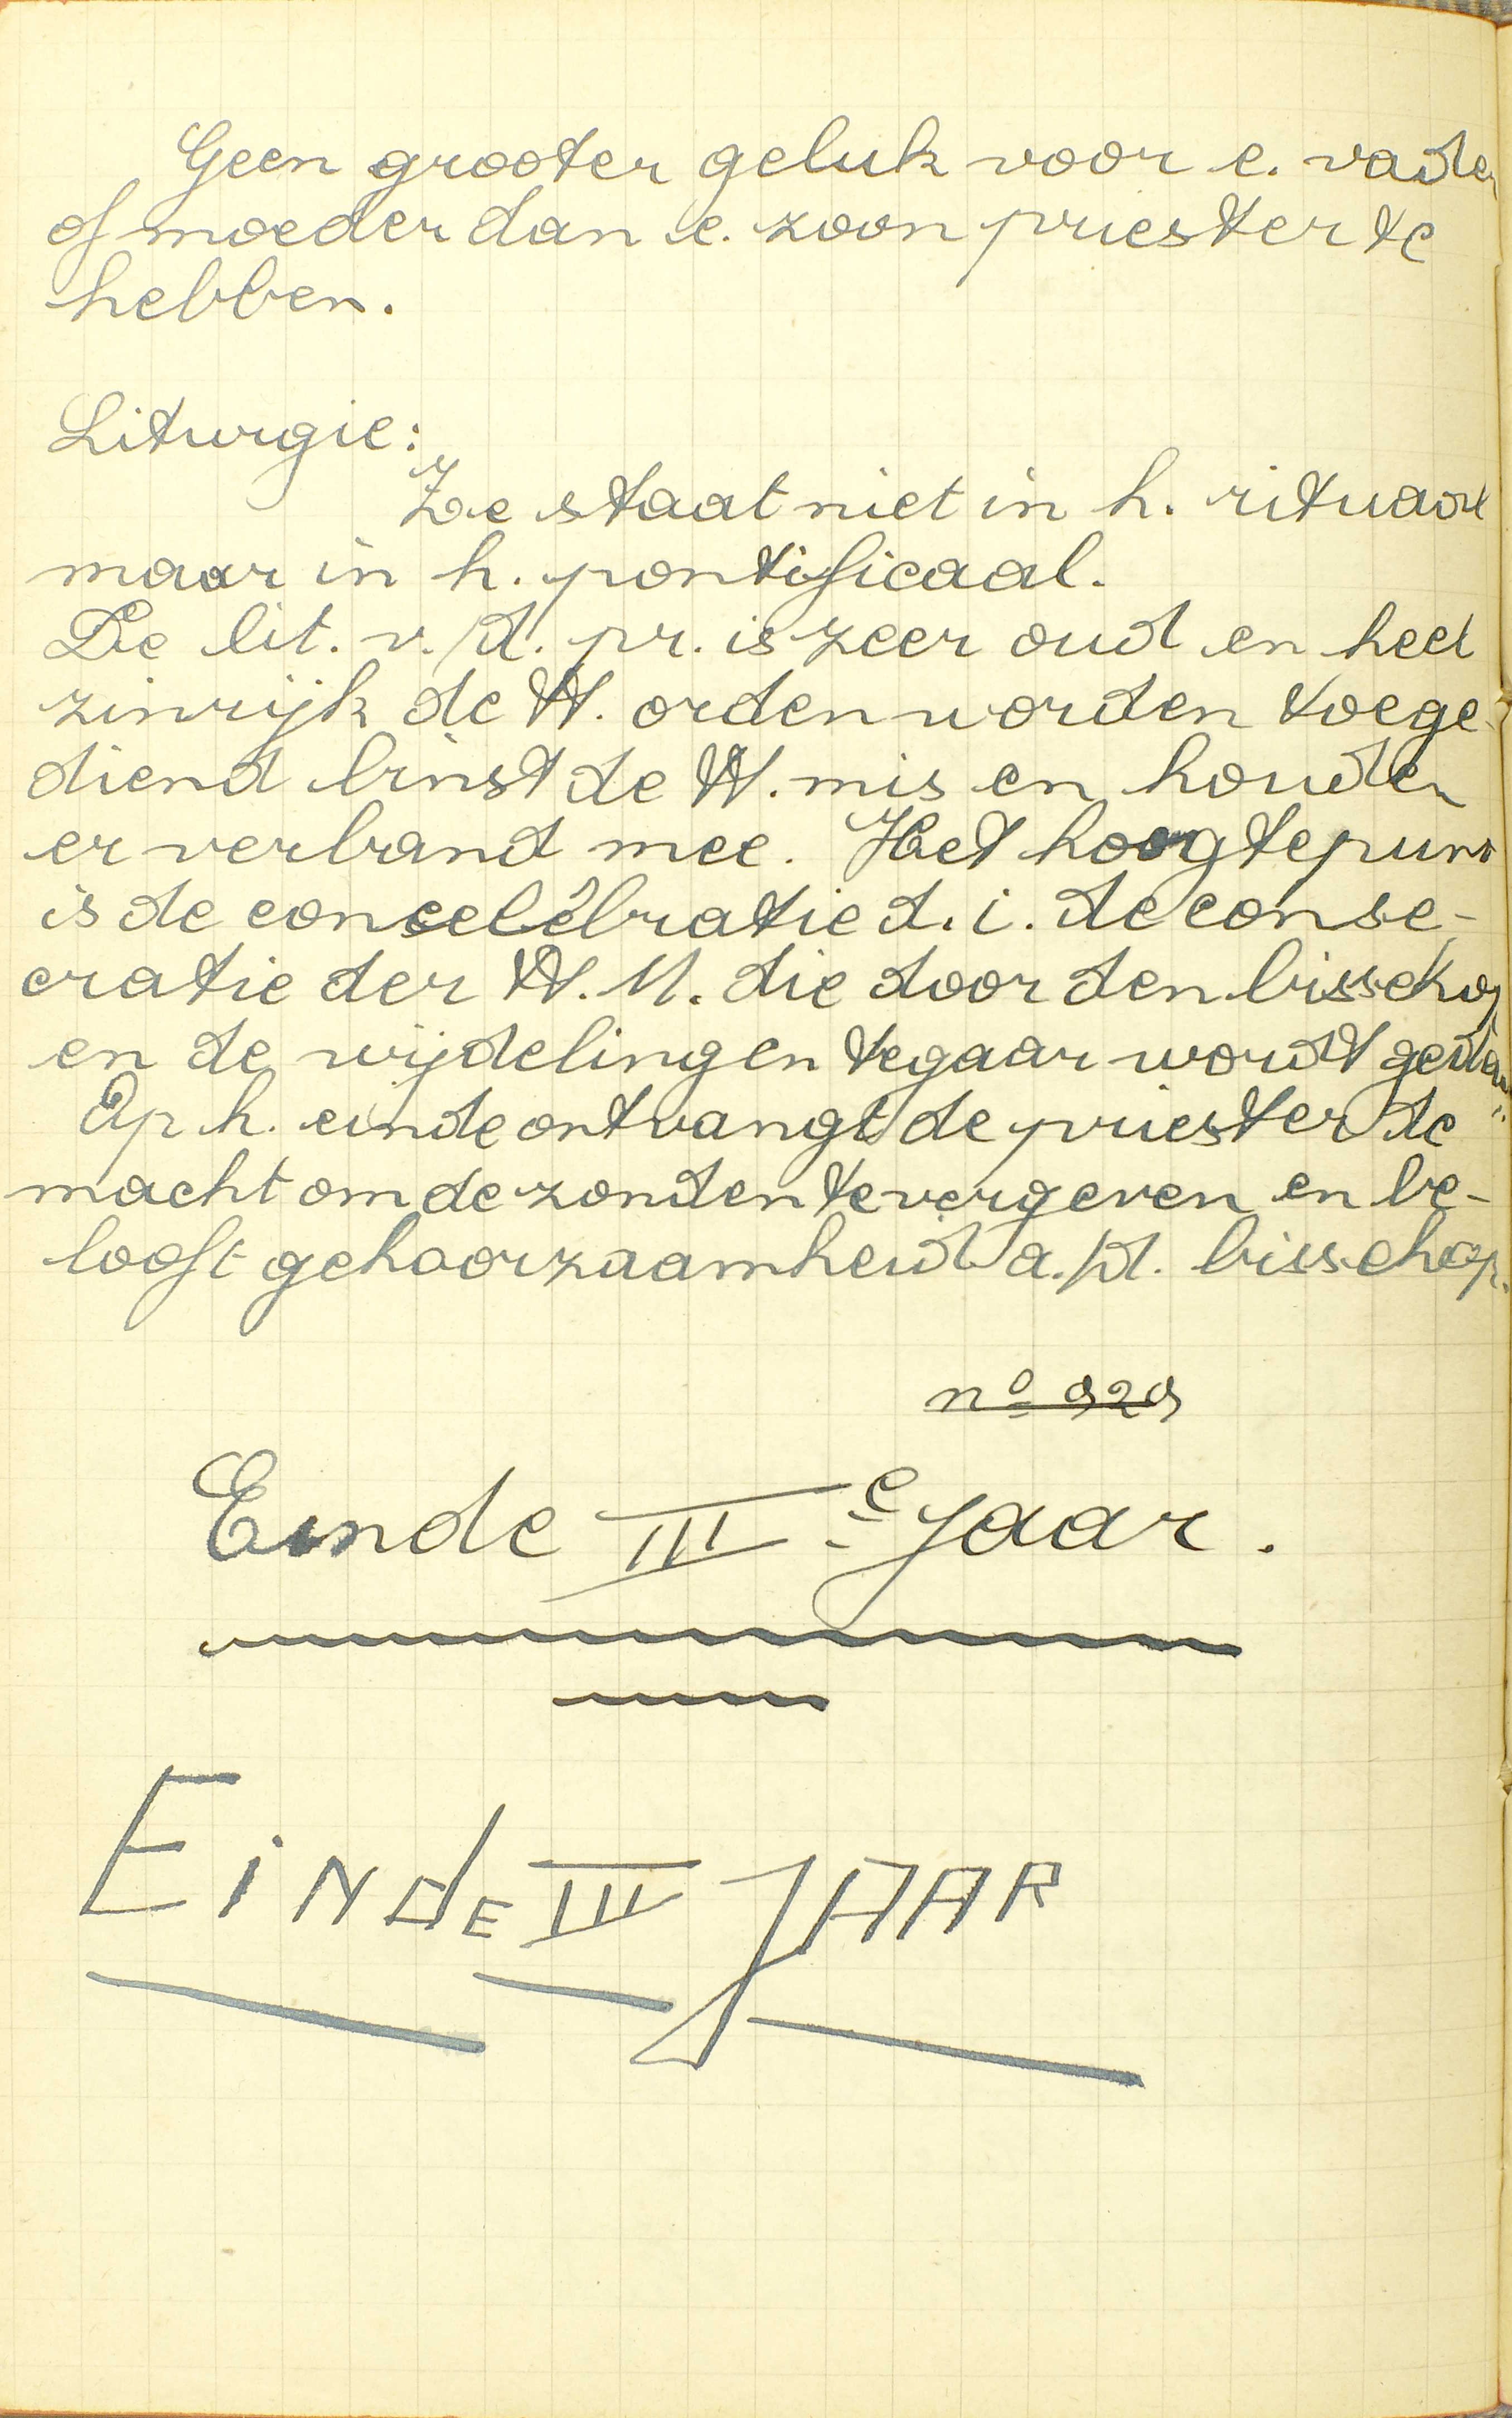 Geen grooter geluk voor e. vader
of moeder dan e. zoon priester te
hebben.
Liturgie:
Ze staat niet in h. rituaal
maar in h. pontificaal.
De lit. v./d. pr. is zeer oud en heel
zinrijk de H. orden worden toege-
diend binst de H. mis en houden
er verband mee. Het hoogtepunt
is de concelêbratie d. i. de conse-
cratie der H. M. die door den bisschop
en de wijdelingen tegaar wordt gedaan
Op h. einde ontvangt de priester de
macht om de zonden te vergeven en be-
looft gehoorzaamheid a./d. bisschop.
nº 929
Einde III e jaar.
EiNdE III JAAR